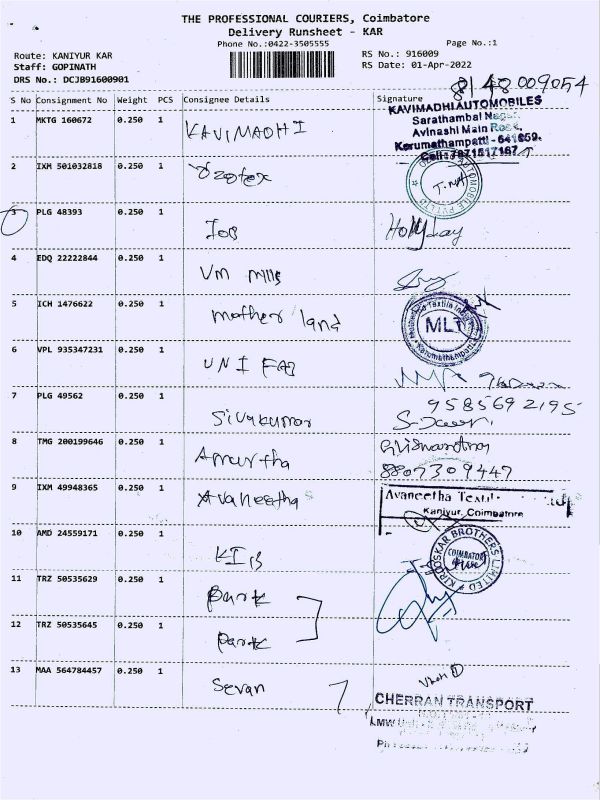 THE PROFESSIONAL COURIERS, Coimbatore
Delivery Runsheet - KAR
Phone No.:0422-3505555
Page No.:1
Route: KANIYUR KAR
Staff: GOPINATH
DRS No.: DCJB91600901
RS No.: 916009
RS Date: 01-Apr-2022
8148009054
S No Consignment No Weight PCS Consignee Details Signature
KAVIMADHI AUTOMOBILES
Sarathambal Nagar,
Avinashi Main Road,
Karumathampatti - 641659.
Cell: 7871517167
1 MKTG 160672 0.250 1 KAVIMADHI
2 IXM 501032818 0.250 1 Ozotex
3 PLG 48393 0.250 1 IOB Hollyday
4 EDQ 22222844 0.250 1 VM Mills
5 ICH 1476622 0.250 1 mother land
MLT
Karumathampatti
6 VPL 935347231 0.250 1 UNI FAB
7 PLG 49562 0.250 1 Sivakumar
9585692195
8 TMG 200199646 0.250 1 Amurtha
8807309447
9 IXM 49948365 0.250 1 Avaneethas
Avaneetha Textil
Kaniyur, Coimbatore
10 AMD 24559171 0.250 1 KIB
KIRLOSKAR BROTHERS LIMITED
COIMBATORE
11 TRZ 50535629 0.250 1 park
12 TRZ 50535645 0.250 1 park
13 MAA 564784457 0.250 1 Sevan
CHERRAN TRANSPORT